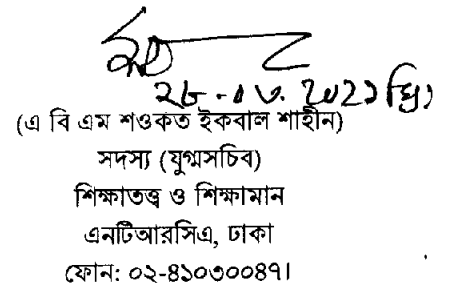 ২৮-০৩.২০২১ খ্রি)
(এ বি এম শওকত ইকবাল শাহীন)
সদস্য (যুগ্মসচিব)
শিক্ষাতত্ত্ব ও শিক্ষামান
এনটিআরসিএ, ঢাকা
ফোন: ০২-৪১০৩০০৪৭।